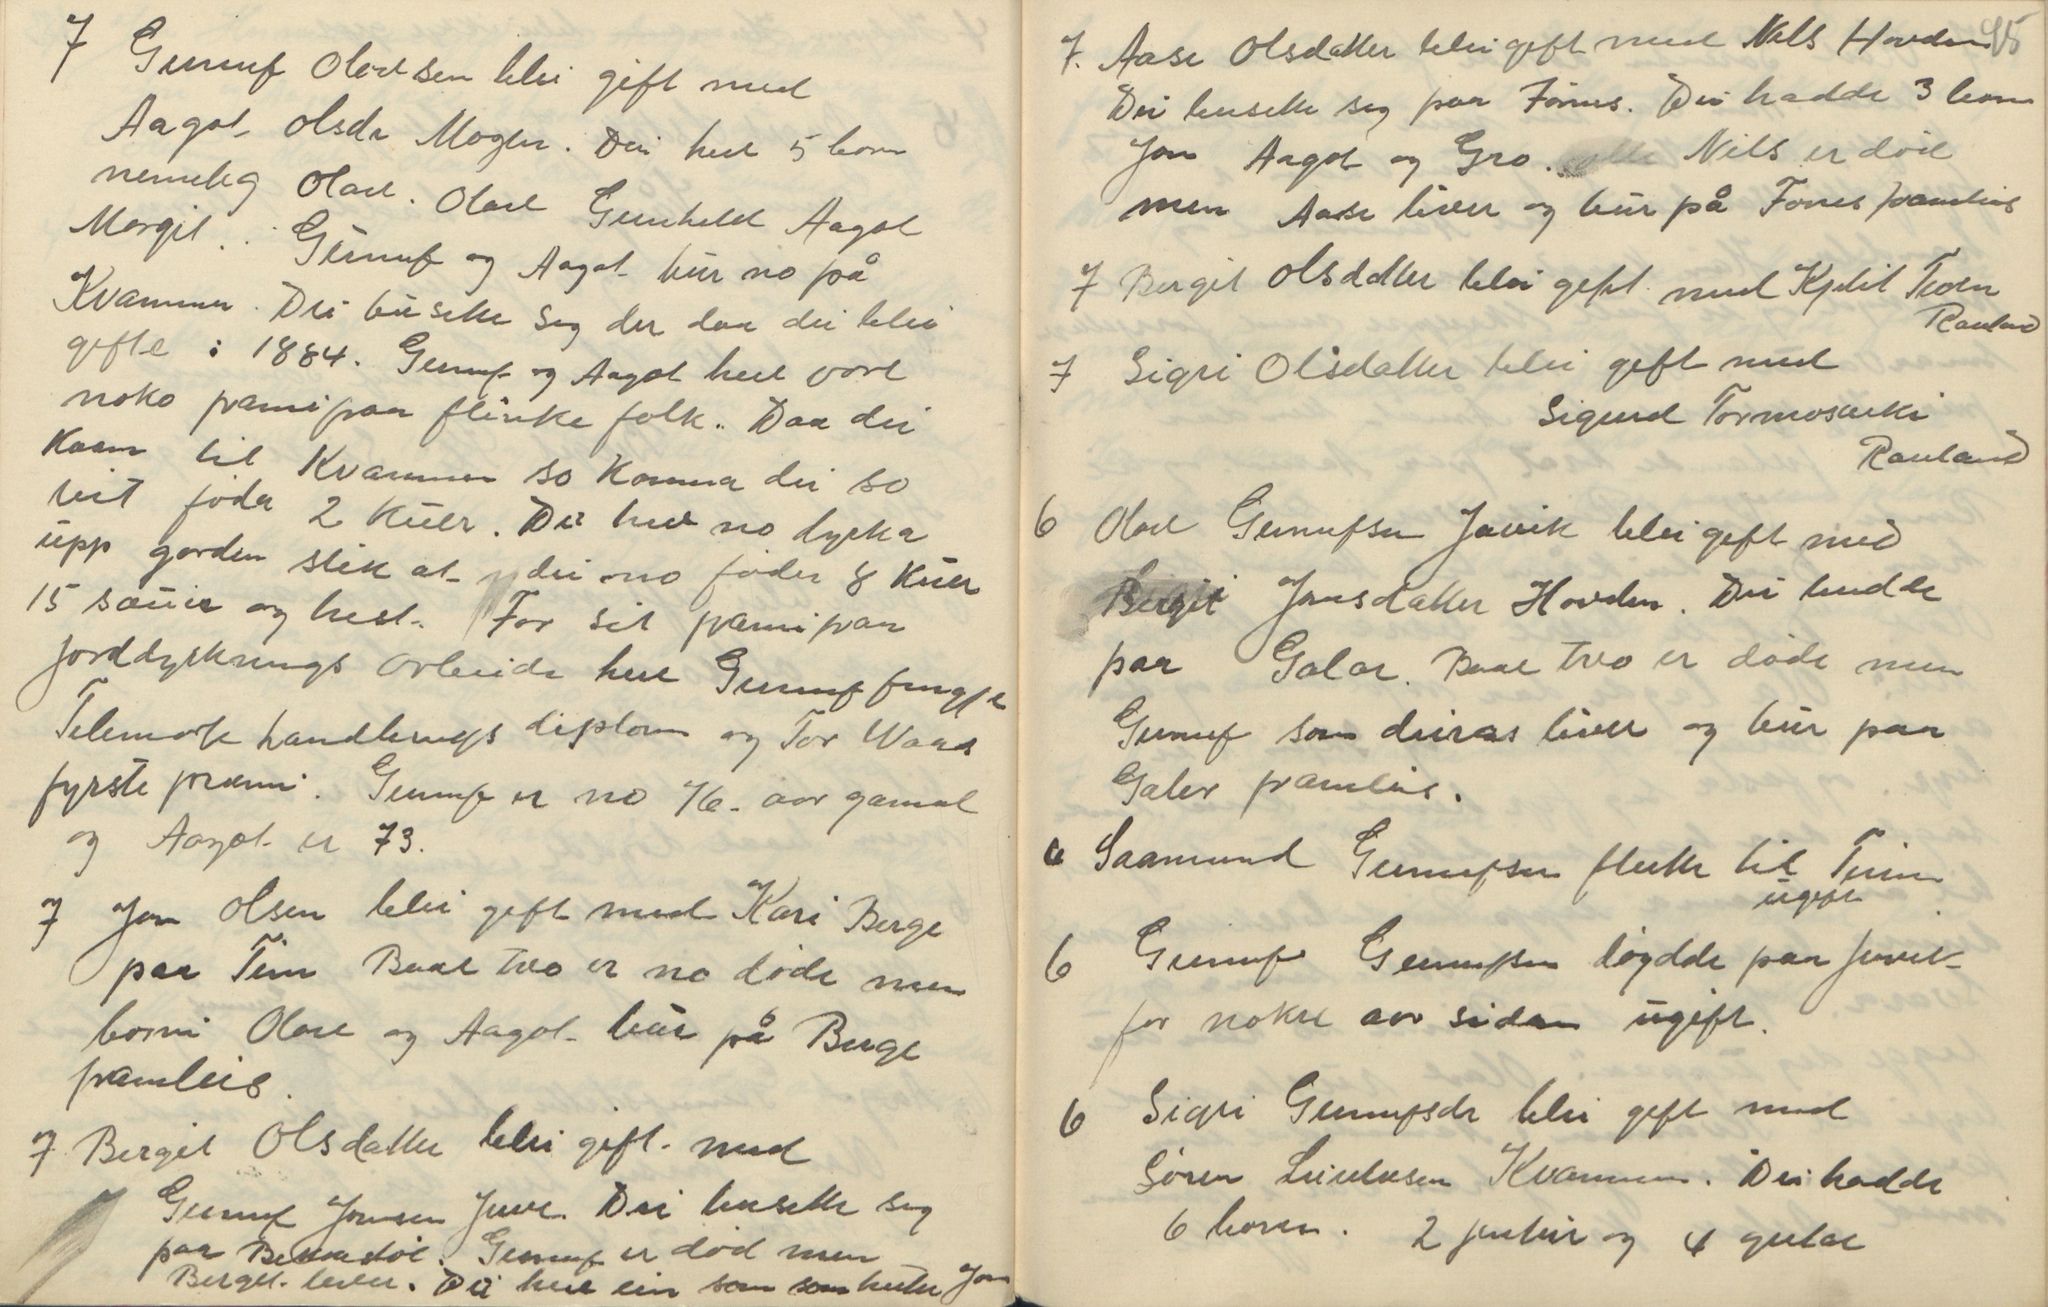 7 Gunnuf Olavsen blei gift med
Aagot Olsdr Mogen. Dei heve 5 born
nemeleg Olav. Olav Gunhild Aagot
Margit. Gunnuf og Aagot bur no på
Kvammen. Dei busette seg der daa dei blei
gifte i 1884. Gunnuf og Aagot heve vore
noko framifraa flinke folk. Daa dei
kaam til Kvammen so kunna dei so
vit föda 2 kuer. Dei heve no dyrka
upp garden slik at dei no föder 8 kuer
15 sauer og hest. For sit framifraa
jorddyrknings arbeide heve Gunnuf fengje
Telemark handlings diplom og Tor Waas
fyrste premi. Gunnuf er no 76 aar gamal
og Aagot er 73.
7 Jon Olsen blei gift med Kari Berge
paa Tinn Baae tvo er no döde men
borni Olav og Aagot bur på Berge
framleis.
7 Bergit Olsdatter blei gift med
Gunnuf Jonsen Juve. Dei busette seg
paa Gunnuf er död men
Bergit lever. Dei heve ein son som heiter Jon
45
7. Aase Olsdatter blei gift med Nils Hovden
Dei busette seg paa Fönnes. Dei hadde 3 born
Jon Aagot og Gro. Nils er död
men Aase liver og bur på Fönnes framleis
7 Bergit Olsdatter blei gift med Kjetil
Rauland
7 Sigri Olsdatter blei gift med
Sigurd
Rauland
6 Olav Gunnufsen Juvik blei gift med
Bergit Jonsdatter Hovden. Dei budde
paa Galar. Baae tvo er döde men
Gunnuf son deiras liver og bur paa
Galar framleis.
6 Saamund Gunnufsen flutte til Tinn
ugift
6 Gunnuf Gunnufsen döydde paa Juvik
for nokre aar sidan ugift.
6 Sigri Gunnufsdr blei gift med
Sören Kvammen. Dei hadde
6 born. 2 jentur og 4 gutar